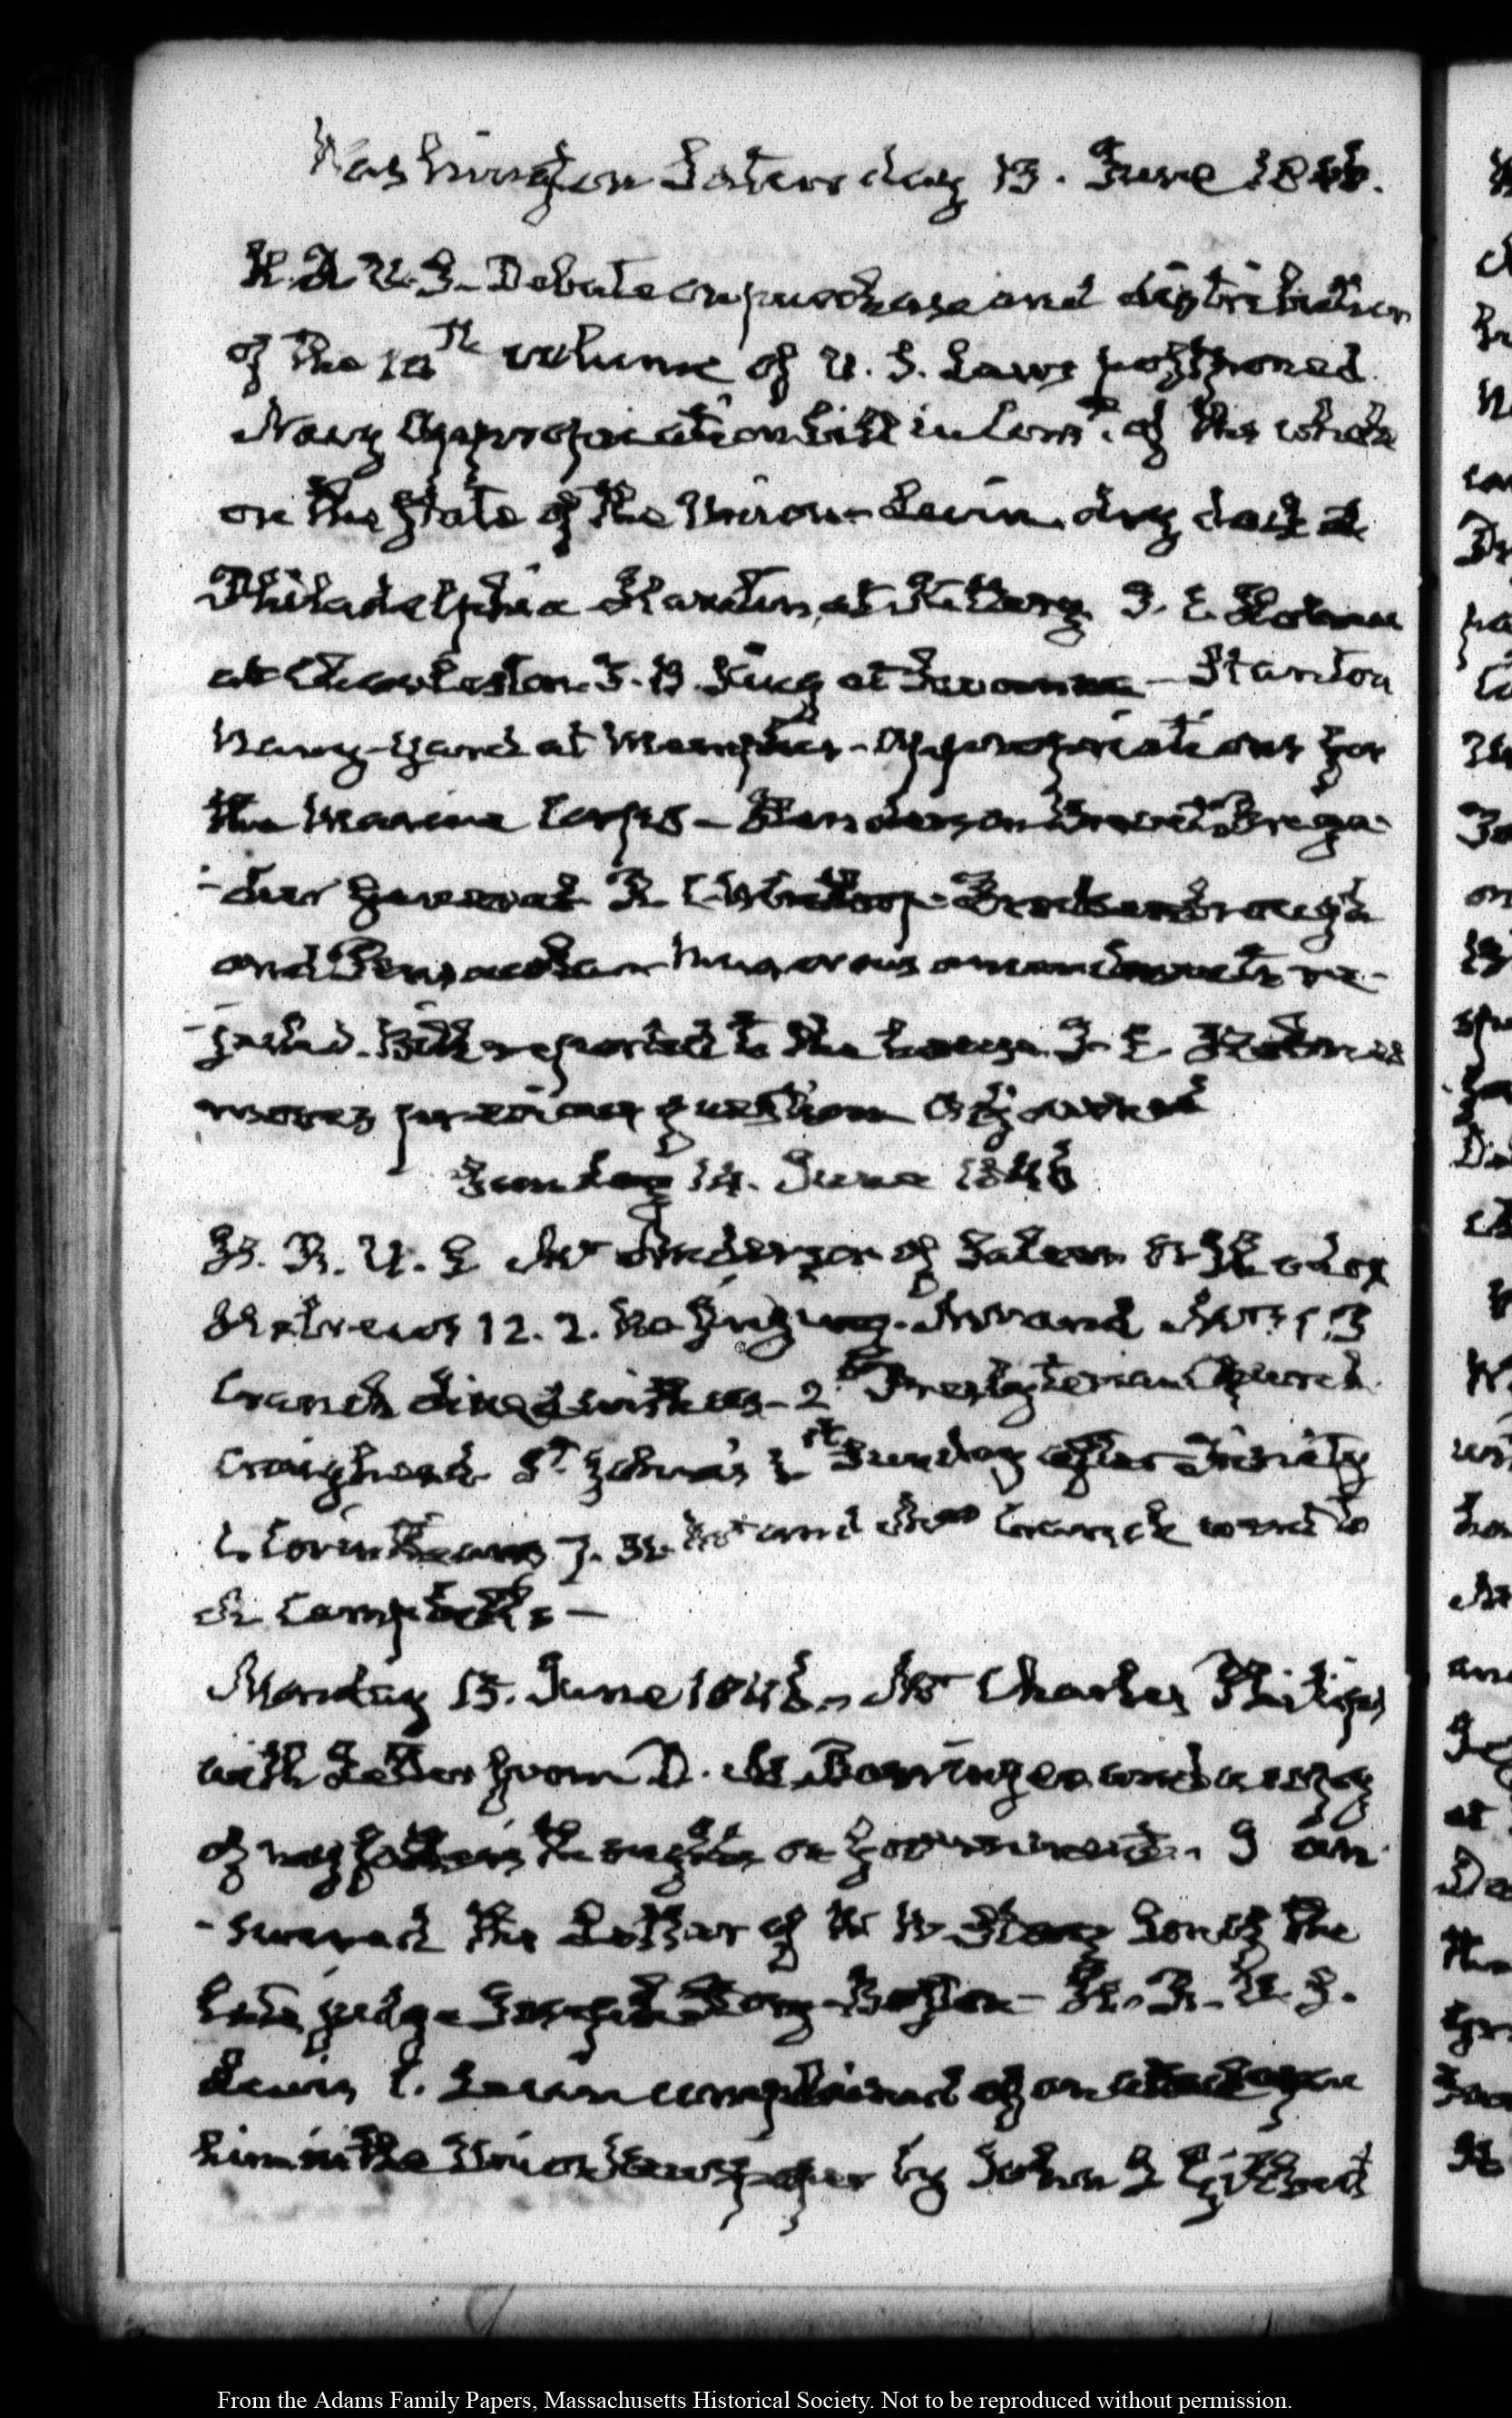 Washington Saturday 13. June 1846.
H.R.U.S. Debate on purchase and distribution
of the 10th volume of U.S. Laws postponed
Navy Appropriation bill in Com. of the whole
on the State of the Union - Levin. dry dock at
Philadelphia at Kittery I. E. Holmes
at Charleston. T. B. King at Savannah - Stanton
Navy-yard at Memphis - Appropriations for
the Marine Corps - Henderson Brevet Briga-
-dier General R. C. Winthrop - Brockenbrough
and numerous amendments re-
-jected. Bill reported to the house. I. E. Holmes
moves previous question Adjourned
Sunday 14. June 1846
H. R. U. S Mr Anderson of Salem Orthodox
Hebrews 12. 2. No singing. Mr and Mrs
Cranch dined with us - 2d Presbyterian Church
Craighead St. John's 1st Sunday after Trinity
1. Corinthians 7. 31. Mr and Mrs Cranch went to
Mr Campbell's —
Monday 15. June 1846. Mr Charles Philips
with Letter from D. M. Barringer and a copy
of my father's thoughts on government. I an-
-swered the Letter of W W Story Son of the
late judge Joseph Story - Boston - H. R. U. S.
Lewis C. Levin complained of an attack upon
him in the Union Newspaper by John S